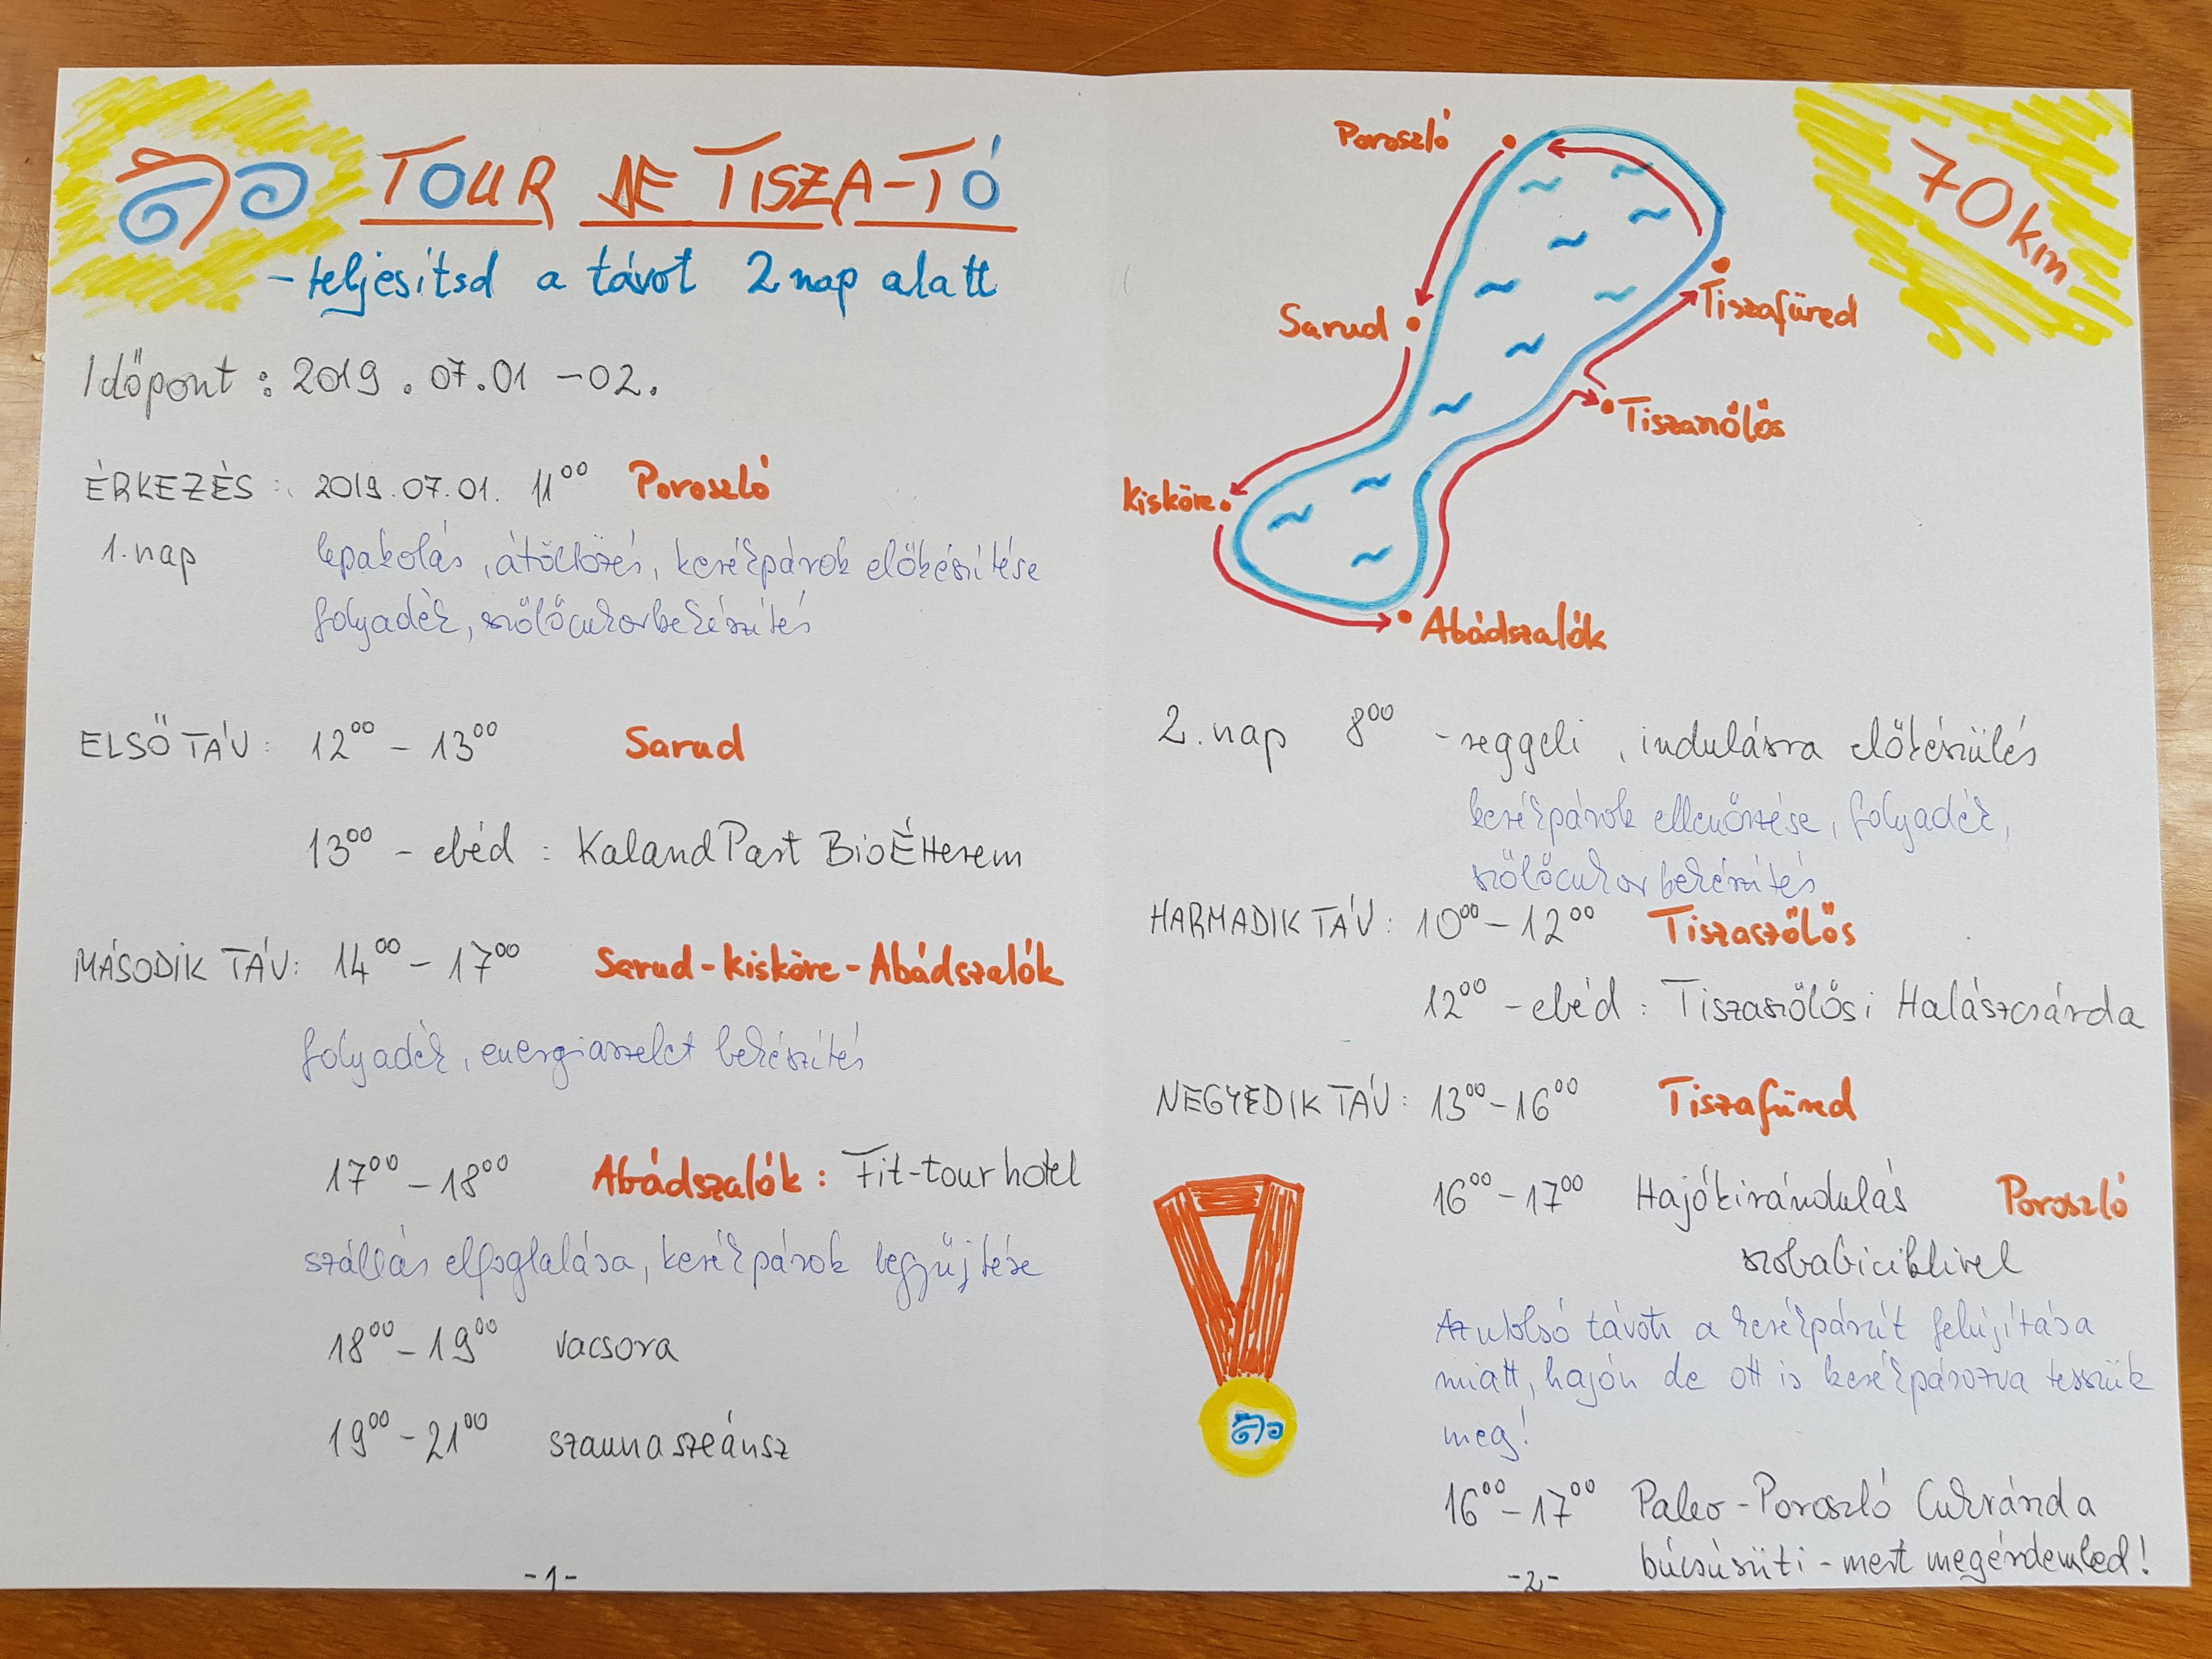 TOUR DE TISZA-TÓ
- teljesítsd a távot 2 nap alatt
Időpont : 2019.07.01 - 02.
ÉRKEZÉS : 2019.07.01. 11⁰⁰ Poroszló
1. nap lepakolás, átöltözés, kerékpárok előkészítése
folyadék, szőlőcukorbekészítés
ELSŐ TÁV : 12⁰⁰ - 13⁰⁰ Sarud
13⁰⁰ - ebéd : KalandPart BioÉtterem
MÁSODIK TÁV : 14⁰⁰ - 17⁰⁰ Sarud - Kisköre - Abádszalók
folyadék, energiaszelet bekészítés
17⁰⁰ - 18⁰⁰ Abádszalók : Fit-tour hotel
szállás elfoglalása, kerékpárok begyűjtése
18⁰⁰ - 19⁰⁰ vacsora
19⁰⁰ - 21⁰⁰ szauna szeánsz
- 1 -
70 km
Poroszló
Sarud
Tiszafüred
Tiszaszőlős
Kisköre
Abádszalók
2. nap 8⁰⁰ - reggeli, indulásra előkészülés
kerékpárok ellenőrzése, folyadék,
szőlőcukor bekészítés
HARMADIK TÁV : 10⁰⁰ - 12⁰⁰ Tiszaszőlős
12⁰⁰ - ebéd : Tiszaszőlősi Halászcsárda
NEGYEDIK TÁV : 13⁰⁰ - 16⁰⁰ Tiszafüred
16⁰⁰ - 17⁰⁰ Hajókirándulás Poroszló
szobabiciklivel
Az utolsó távot a kerékpárút felújítása
miatt, hajón de ott is kerékpározva tesszük
meg!
16⁰⁰ - 17⁰⁰ Paleo - Poroszló Cukrászda
búcsúsüti - mert megérdemled!
- 2 -